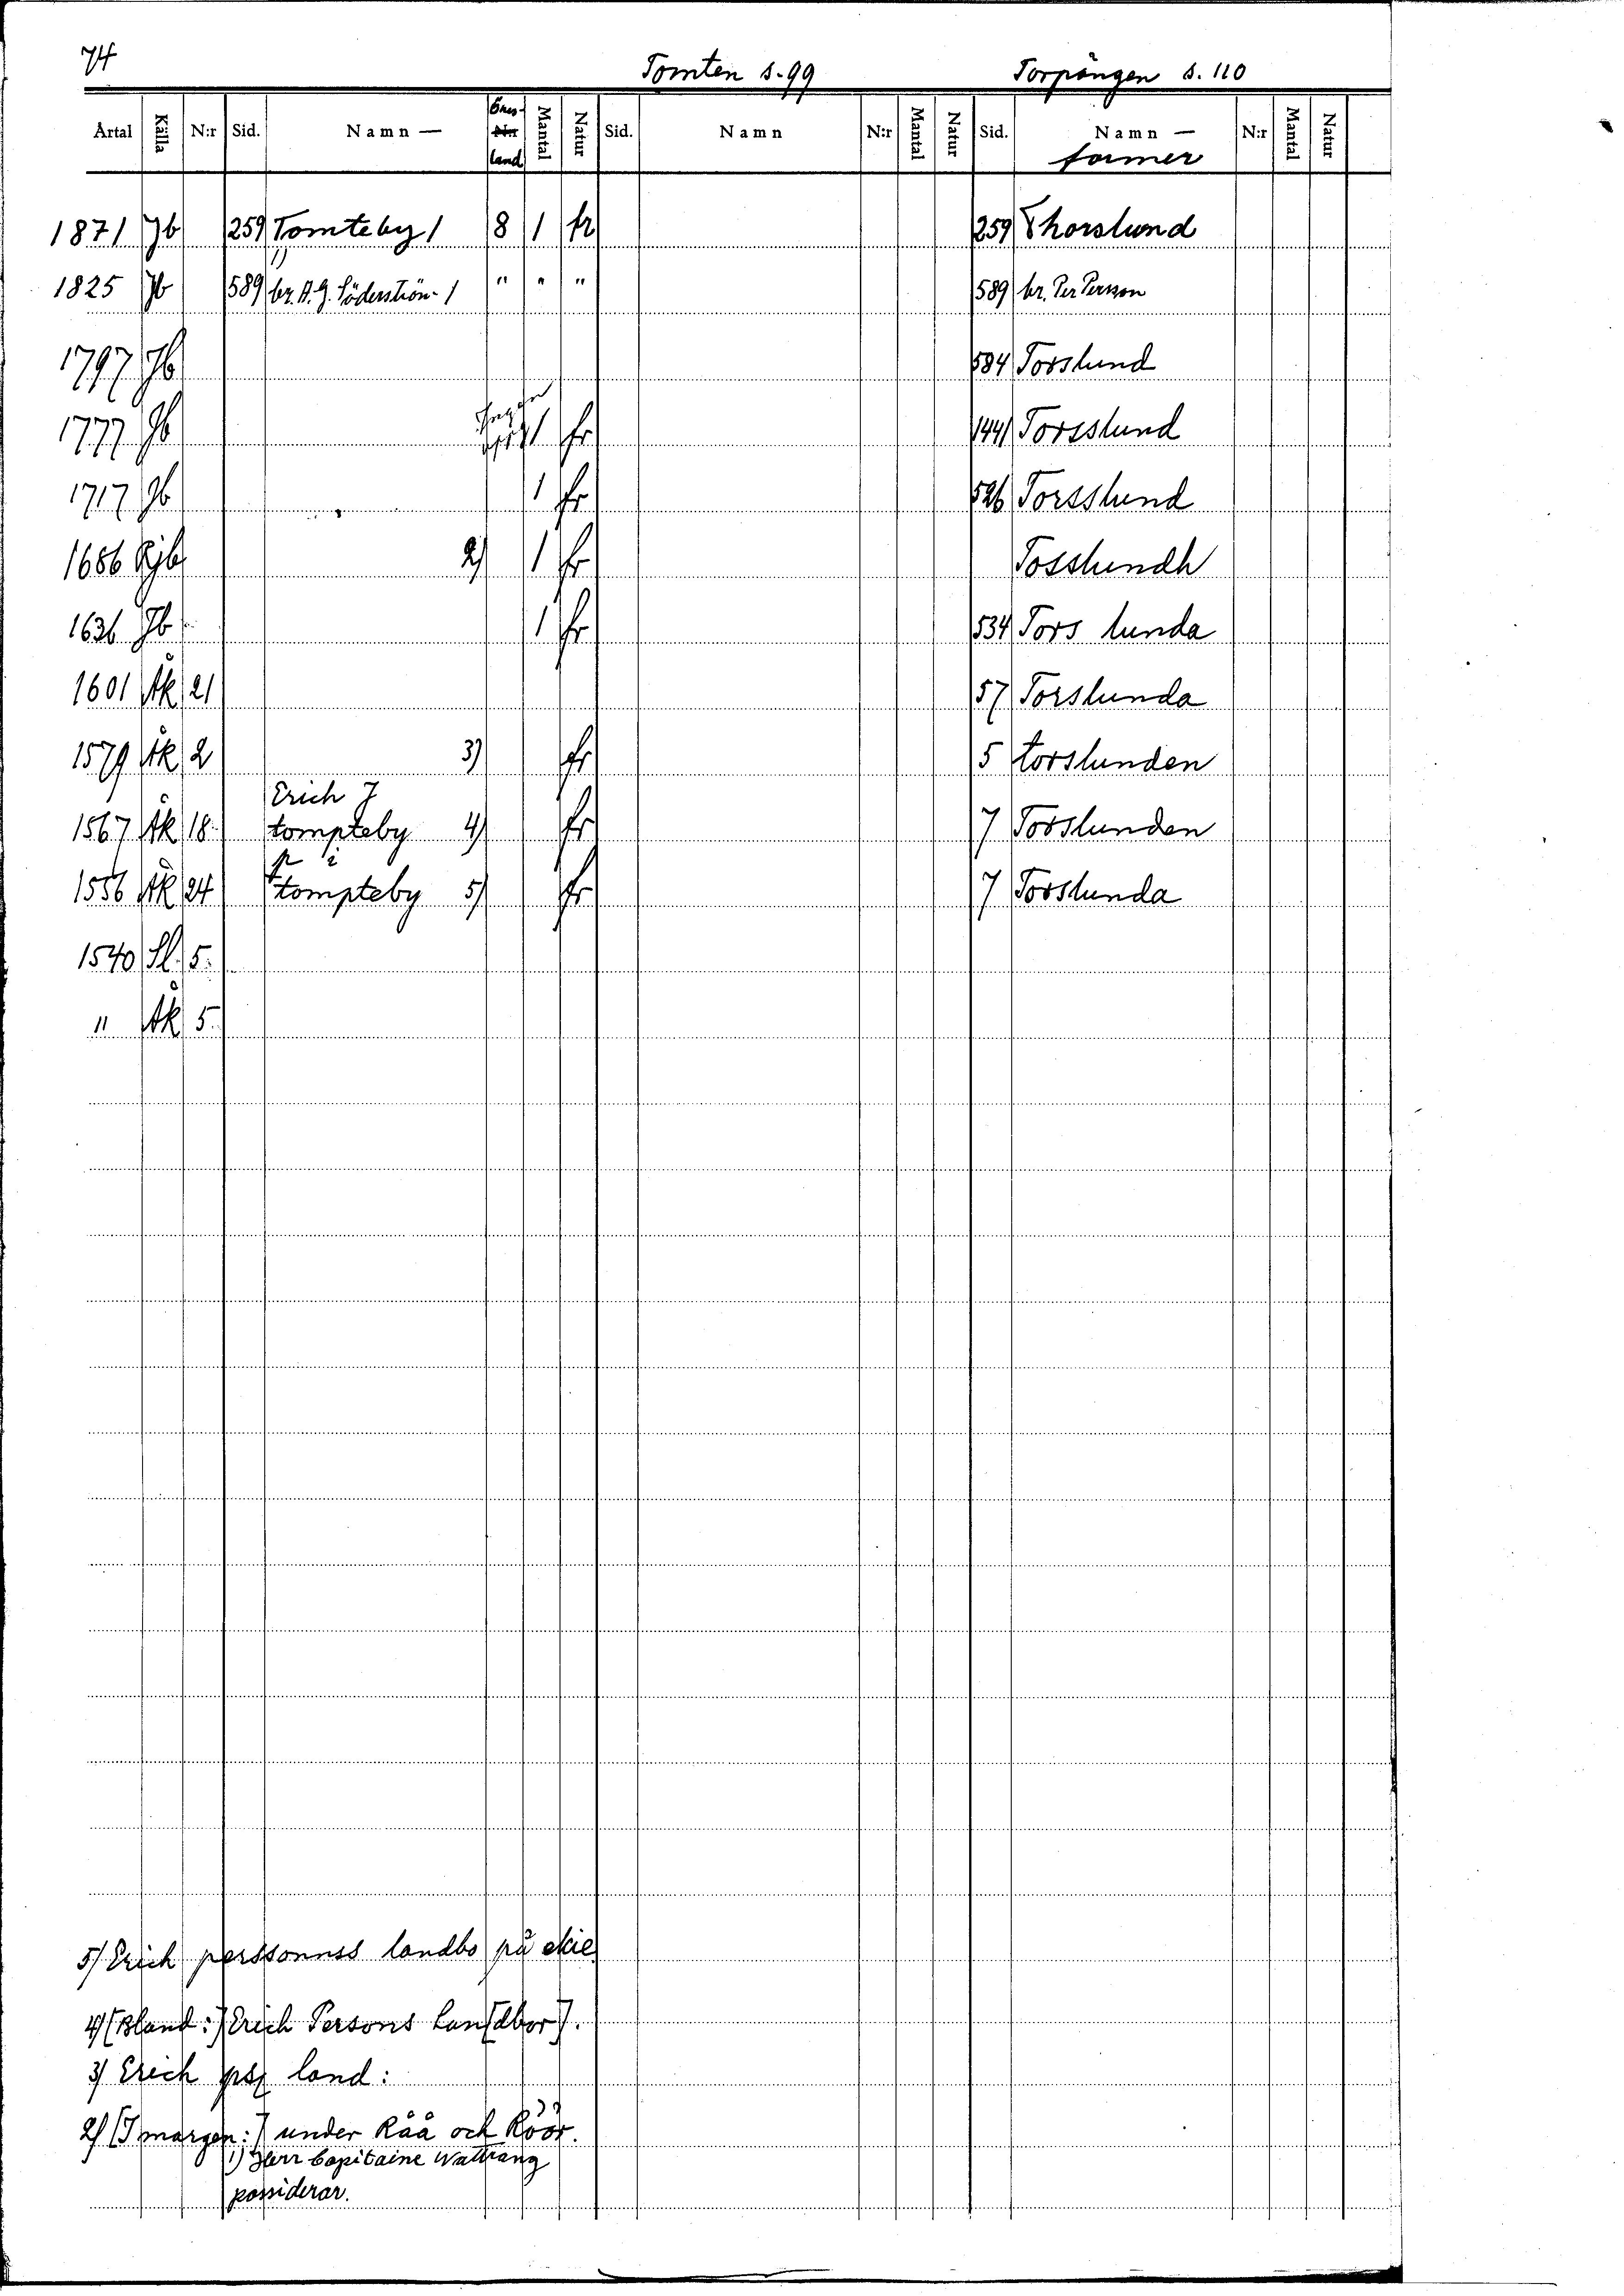 74
Tomten s. 99 Torpängen s. 110
Årtal Källa N:r Sid. Namn — Öres- land Mantal Natur Sid. Namn N:r Mantal Natur Sid. Namn — former N:r Mantal Natur
1871 Jb 259 Tomteby 1 8 1 fr 259 Thorslund
1825 Jb 589 br. A. G. Söderström 1) 1 " " " 589 br. Per Persson
1797 Jb 584 Torslund
1777 Jb 1 fr 1441 Torsslund
1717 Jb 1 fr 526 Torsslund
1686 Rjb 2) 1 fr Tosslundh
1636 Jb 1 fr 534 Tors lunda
1601 Åk 21 57 Torslunda
1579 Åk 2 3) fr 5 torslunden
Erich J
1567 Åk 18 tompteby 4) fr 7 Torslunden
p i
1556 Åk 24 tompteby 5) fr 7 Torslunda
1540 Sl. 5.
" Åk 5.
5) Erich perssonnss landbo på ekie
4) [Bland:] Erich Persons Lan[dbor].
3) Erich psz land:
2) [I margen:] under Råå och Röör.
1) Herr Capitaine Wattrang
possiderar.